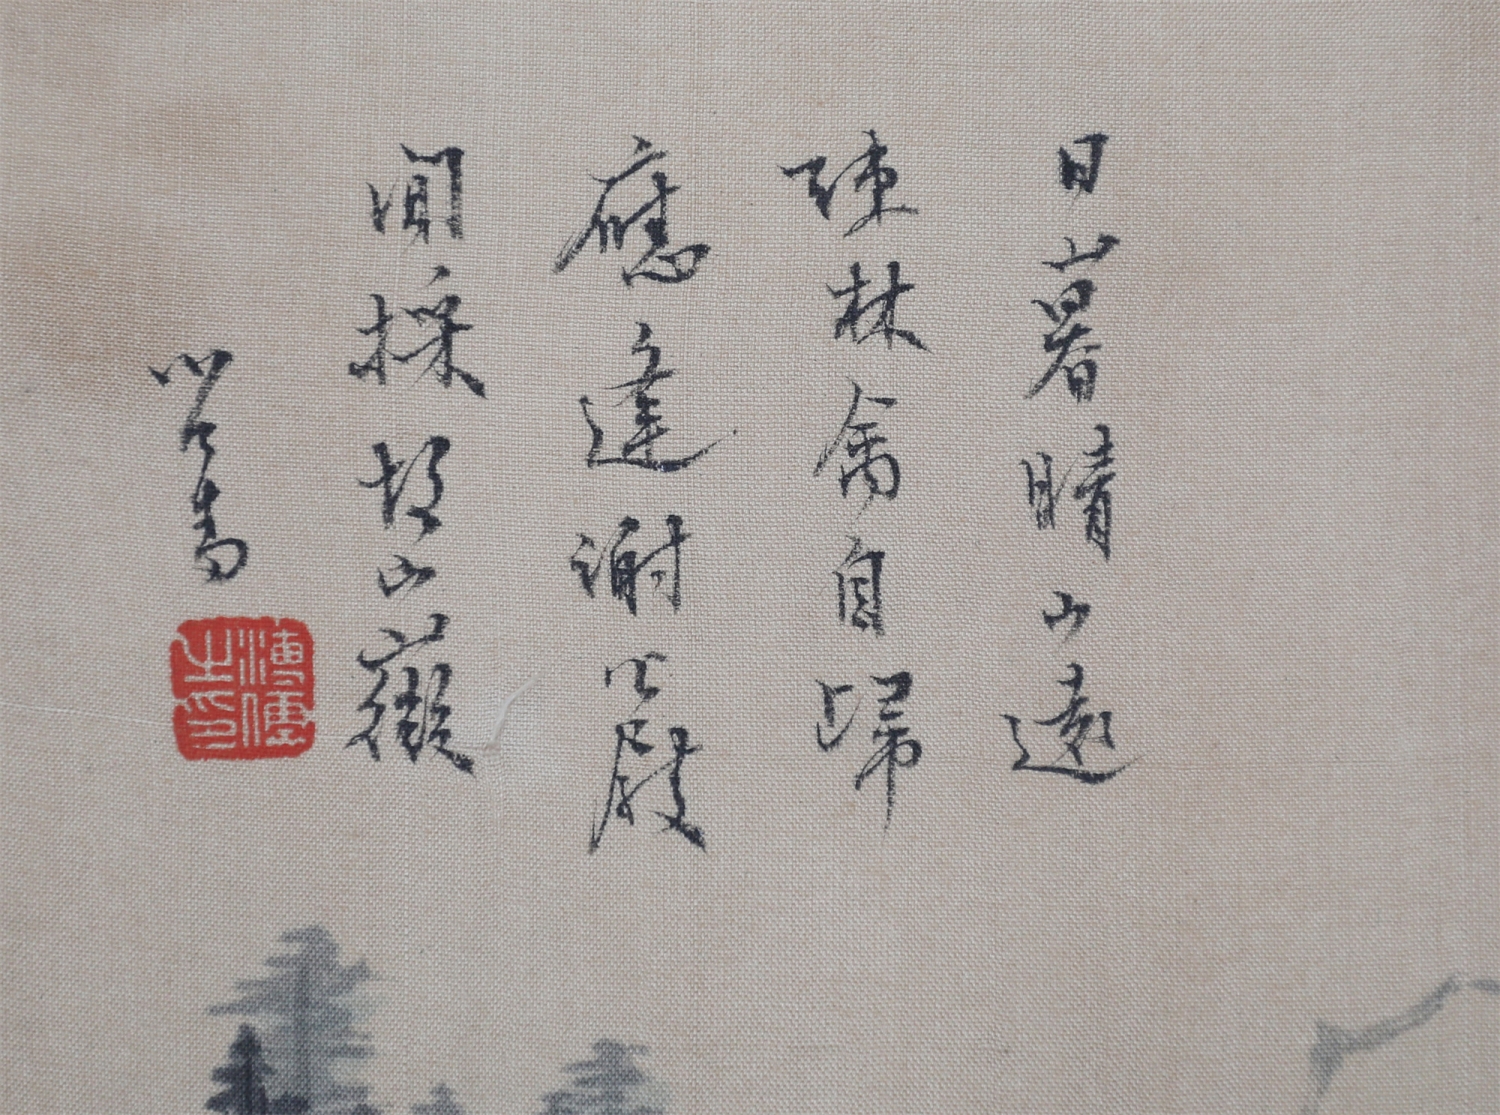 日暮晴山遠
疎林禽自歸
應逢謝公屐
閒採故山薇
心畬
溥儒之印